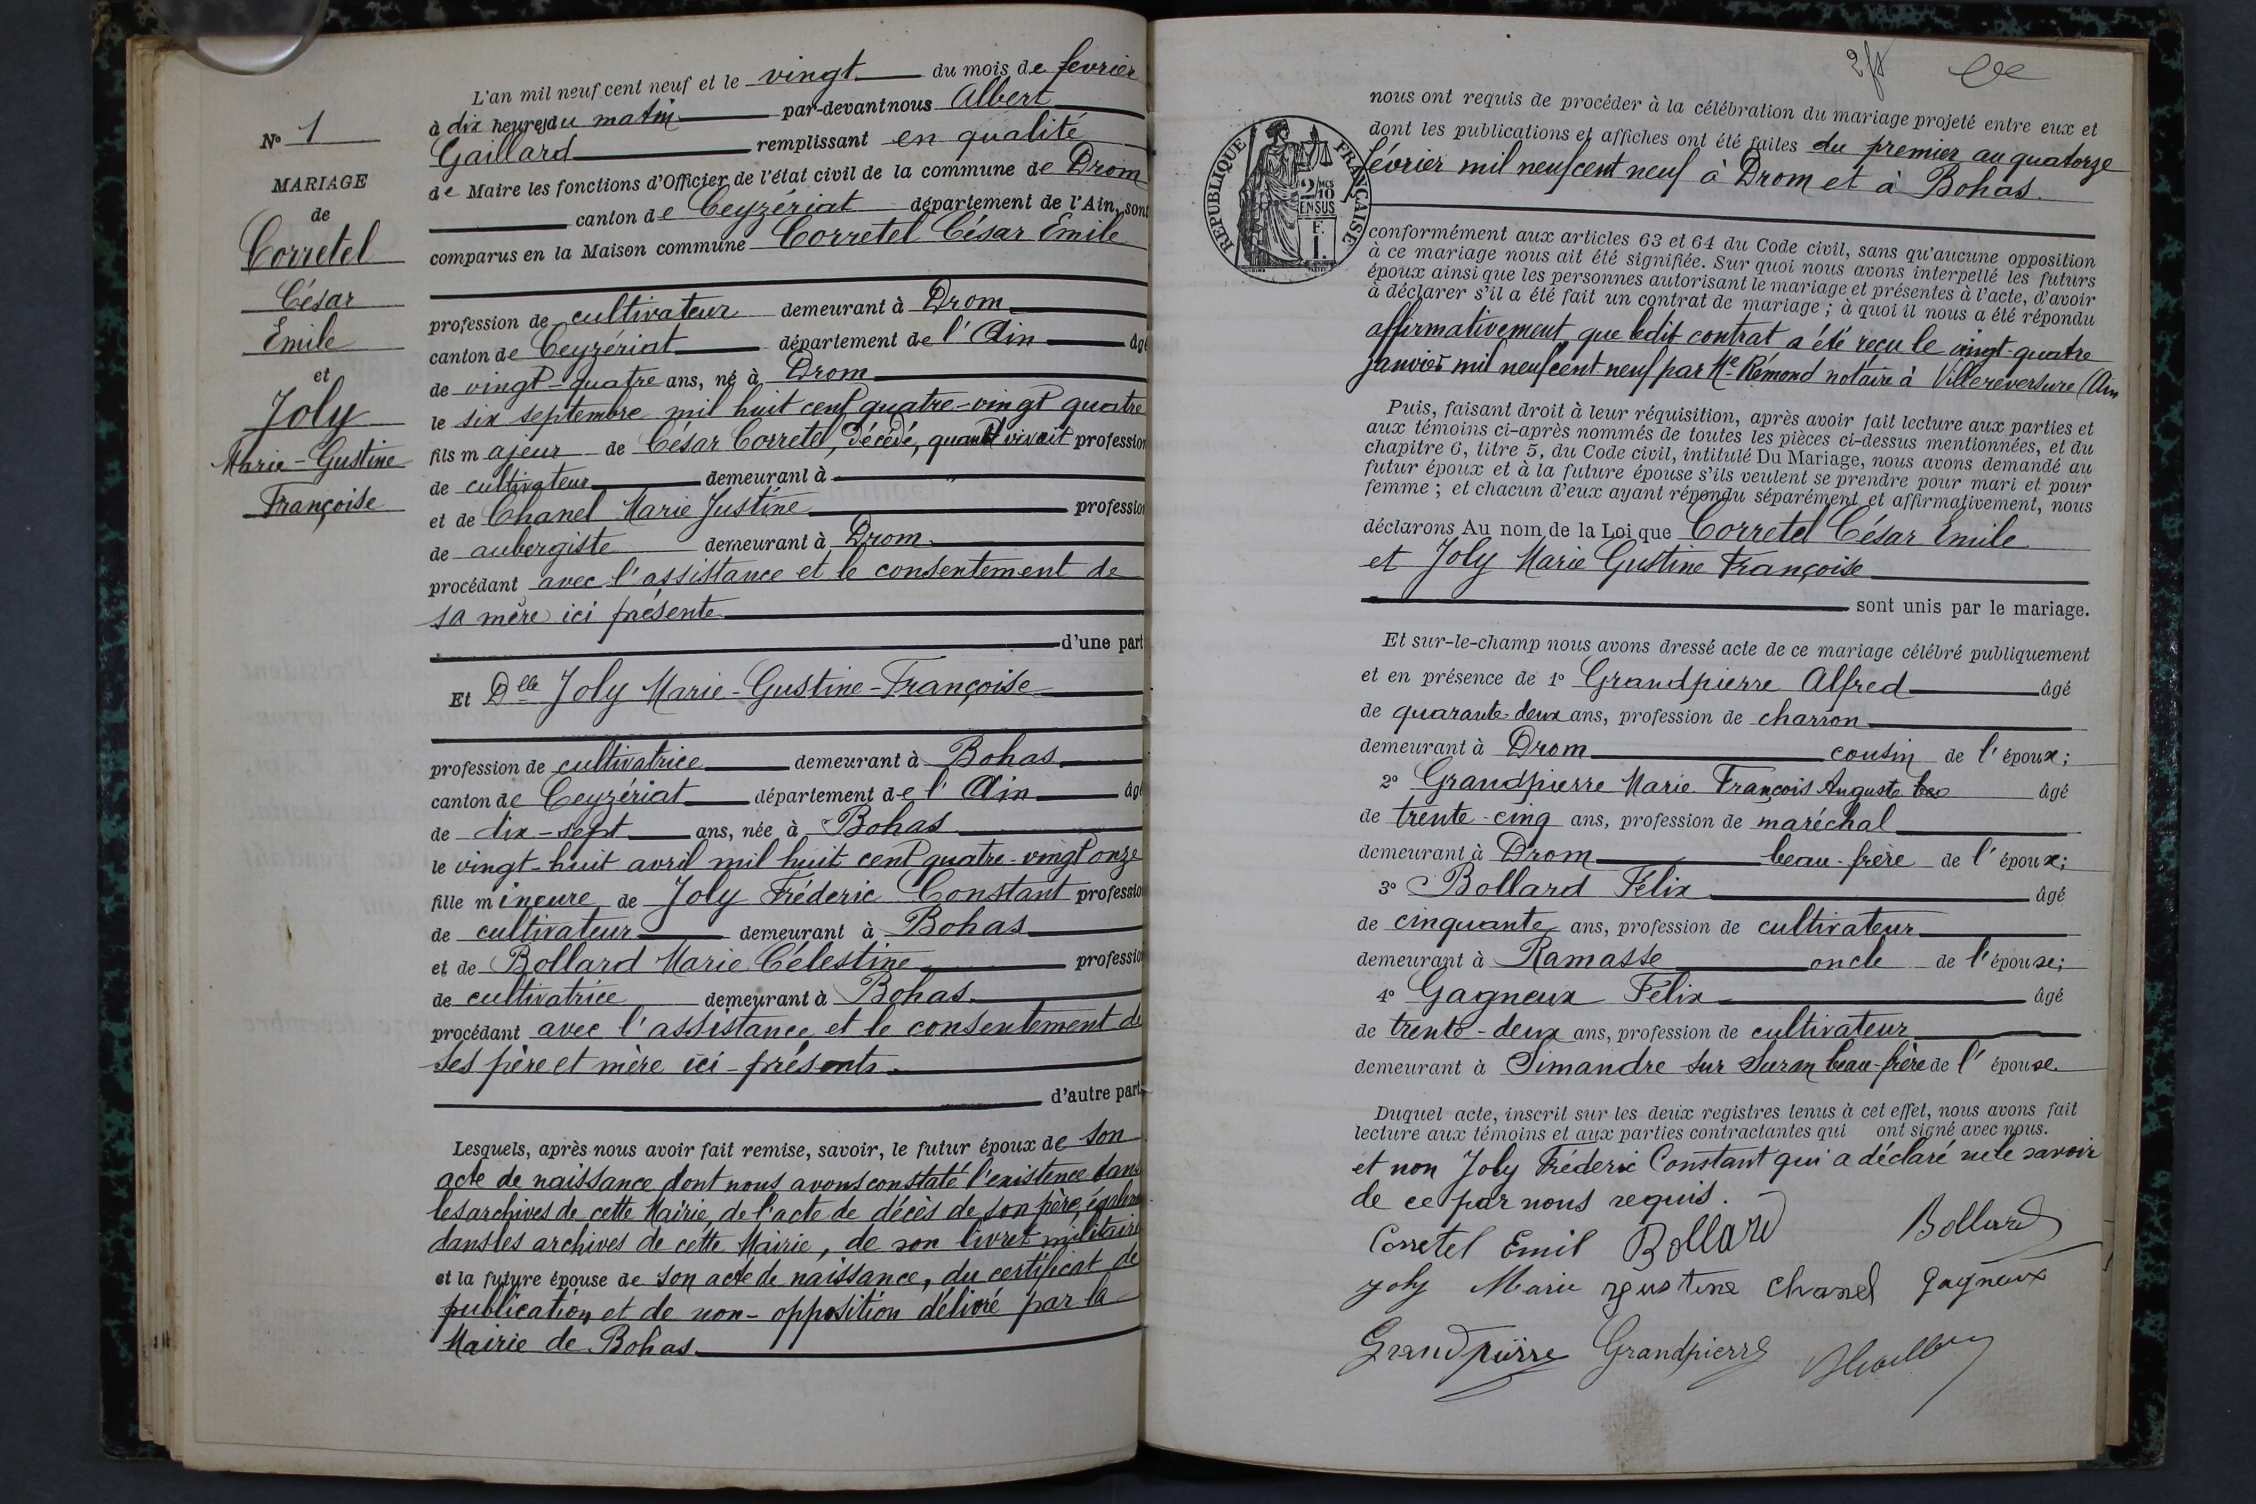 N° 1
MARIAGE
de
Corretel
César
Emile
et
Joly
Marie-Gustine
Françoise
L'an mil neuf cent neuf et le vingt du mois de fevrier
à dix heures du matin par-devant nous Albert
Gaillard remplissant en qualité
de Maire les fonctions d'Officier de l'état civil de la commune de Drom
canton de Ceyzériat département de l'Ain, sont
comparus en la Maison commune Corretel César Emile
profession de cultivateur demeurant à Drom
canton de Ceyzériat département de l'Ain âgé
de vingt-quatre ans, né à Drom
le six septembre mil huit cent quatre-vingt quatre
fils majeur de César Corretel, décédé, quand vivait profession
de cultivateur demeurant à "
et de Chanel Marie Justine profession
de aubergiste demeurant à Drom
procédant avec l'assistance et le consentement de
sa mère ici présente
d'une part
Et Dlle Joly Marie-Gustine-Françoise
profession de cultivatrice demeurant à Bohas
canton de Ceyzériat département de l'Ain âgé
de dix-sept ans, née à Bohas
le vingt-huit avril mil huit cent quatre-vingt onze
fille mineure de Joly Fréderic Constant profession
de cultivateur demeurant à Bohas
et de Bollard Marie Célestine profession
de cultivatrice demeurant à Bohas
procédant avec l'assistance et le consentement de
ses père et mère ici-présents
d'autre part.
Lesquels, après nous avoir fait remise, savoir, le futur époux de son
acte de naissance dont nous avons constaté l'existence dans
les archives de cette Mairie, de l'acte de décès de son père, égalem
dans les archives de cette Mairie, de son livret militaire
et la future épouse de son acte de naissance, du certificat de
publication et de non-opposition délivré par la
Mairie de Bohas
RÉPUBLIQUE FRANÇAISE
2/10
EN SUS
F.
1.
nous ont requis de procéder à la célébration du mariage projeté entre eux et
dont les publications et affiches ont été faites du premier au quatorze
février mil neuf cent neuf à Drom et à Bohas.
conformément aux articles 63 et 64 du Code civil, sans qu'aucune opposition
à ce mariage nous ait été signifiée. Sur quoi nous avons interpellé les futurs
époux ainsi que les personnes autorisant le mariage et présentes à l'acte, d'avoir
à déclarer s'il a été fait un contrat de mariage ; à quoi il nous a été répondu
affirmativement que ledit contrat a été reçu le vingt-quatre
janvier mil neuf cent neuf par Me Rémond notaire à Villereversure (Ain
Puis, faisant droit à leur réquisition, après avoir fait lecture aux parties et
aux témoins ci-après nommés de toutes les pièces ci-dessus mentionnées, et du
chapitre 6, titre 5, du Code civil, intitulé Du Mariage, nous avons demandé au
futur époux et à la future épouse s'ils veulent se prendre pour mari et pour
femme ; et chacun d'eux ayant répondu séparément et affirmativement, nous
déclarons Au nom de la Loi que Corretel César Emile
et Joly Marie Gustine Françoise
sont unis par le mariage.
Et sur-le-champ nous avons dressé acte de ce mariage célébré publiquement
et en présence de 1° Grandpierre Alfred âgé
de quarante-deux ans, profession de charron
demeurant à Drom cousin de l'époux;
2° Grandpierre Marie François Auguste âgé
de trente-cinq ans, profession de maréchal
demeurant à Drom beau-frère de l'époux;
3° Bollard Félix âgé
de cinquante ans, profession de cultivateur
demeurant à Ramasse oncle de l'épouse;
4° Gagneux Félix âgé
de trente-deux ans, profession de cultivateur
demeurant à Simandre sur Suran beau-frère de l'épouse.
Duquel acte, inscrit sur les deux registres tenus à cet effet, nous avons fait
lecture aux témoins et aux parties contractantes qui ont signé avec nous.
et non Joly Fréderic Constant qui a déclaré ne le savoir
de ce par nous requis.
Corretel Emil Bollard Bollard
Joly Marie gustine Chanel Gagneux
Grandpierre Grandpierre